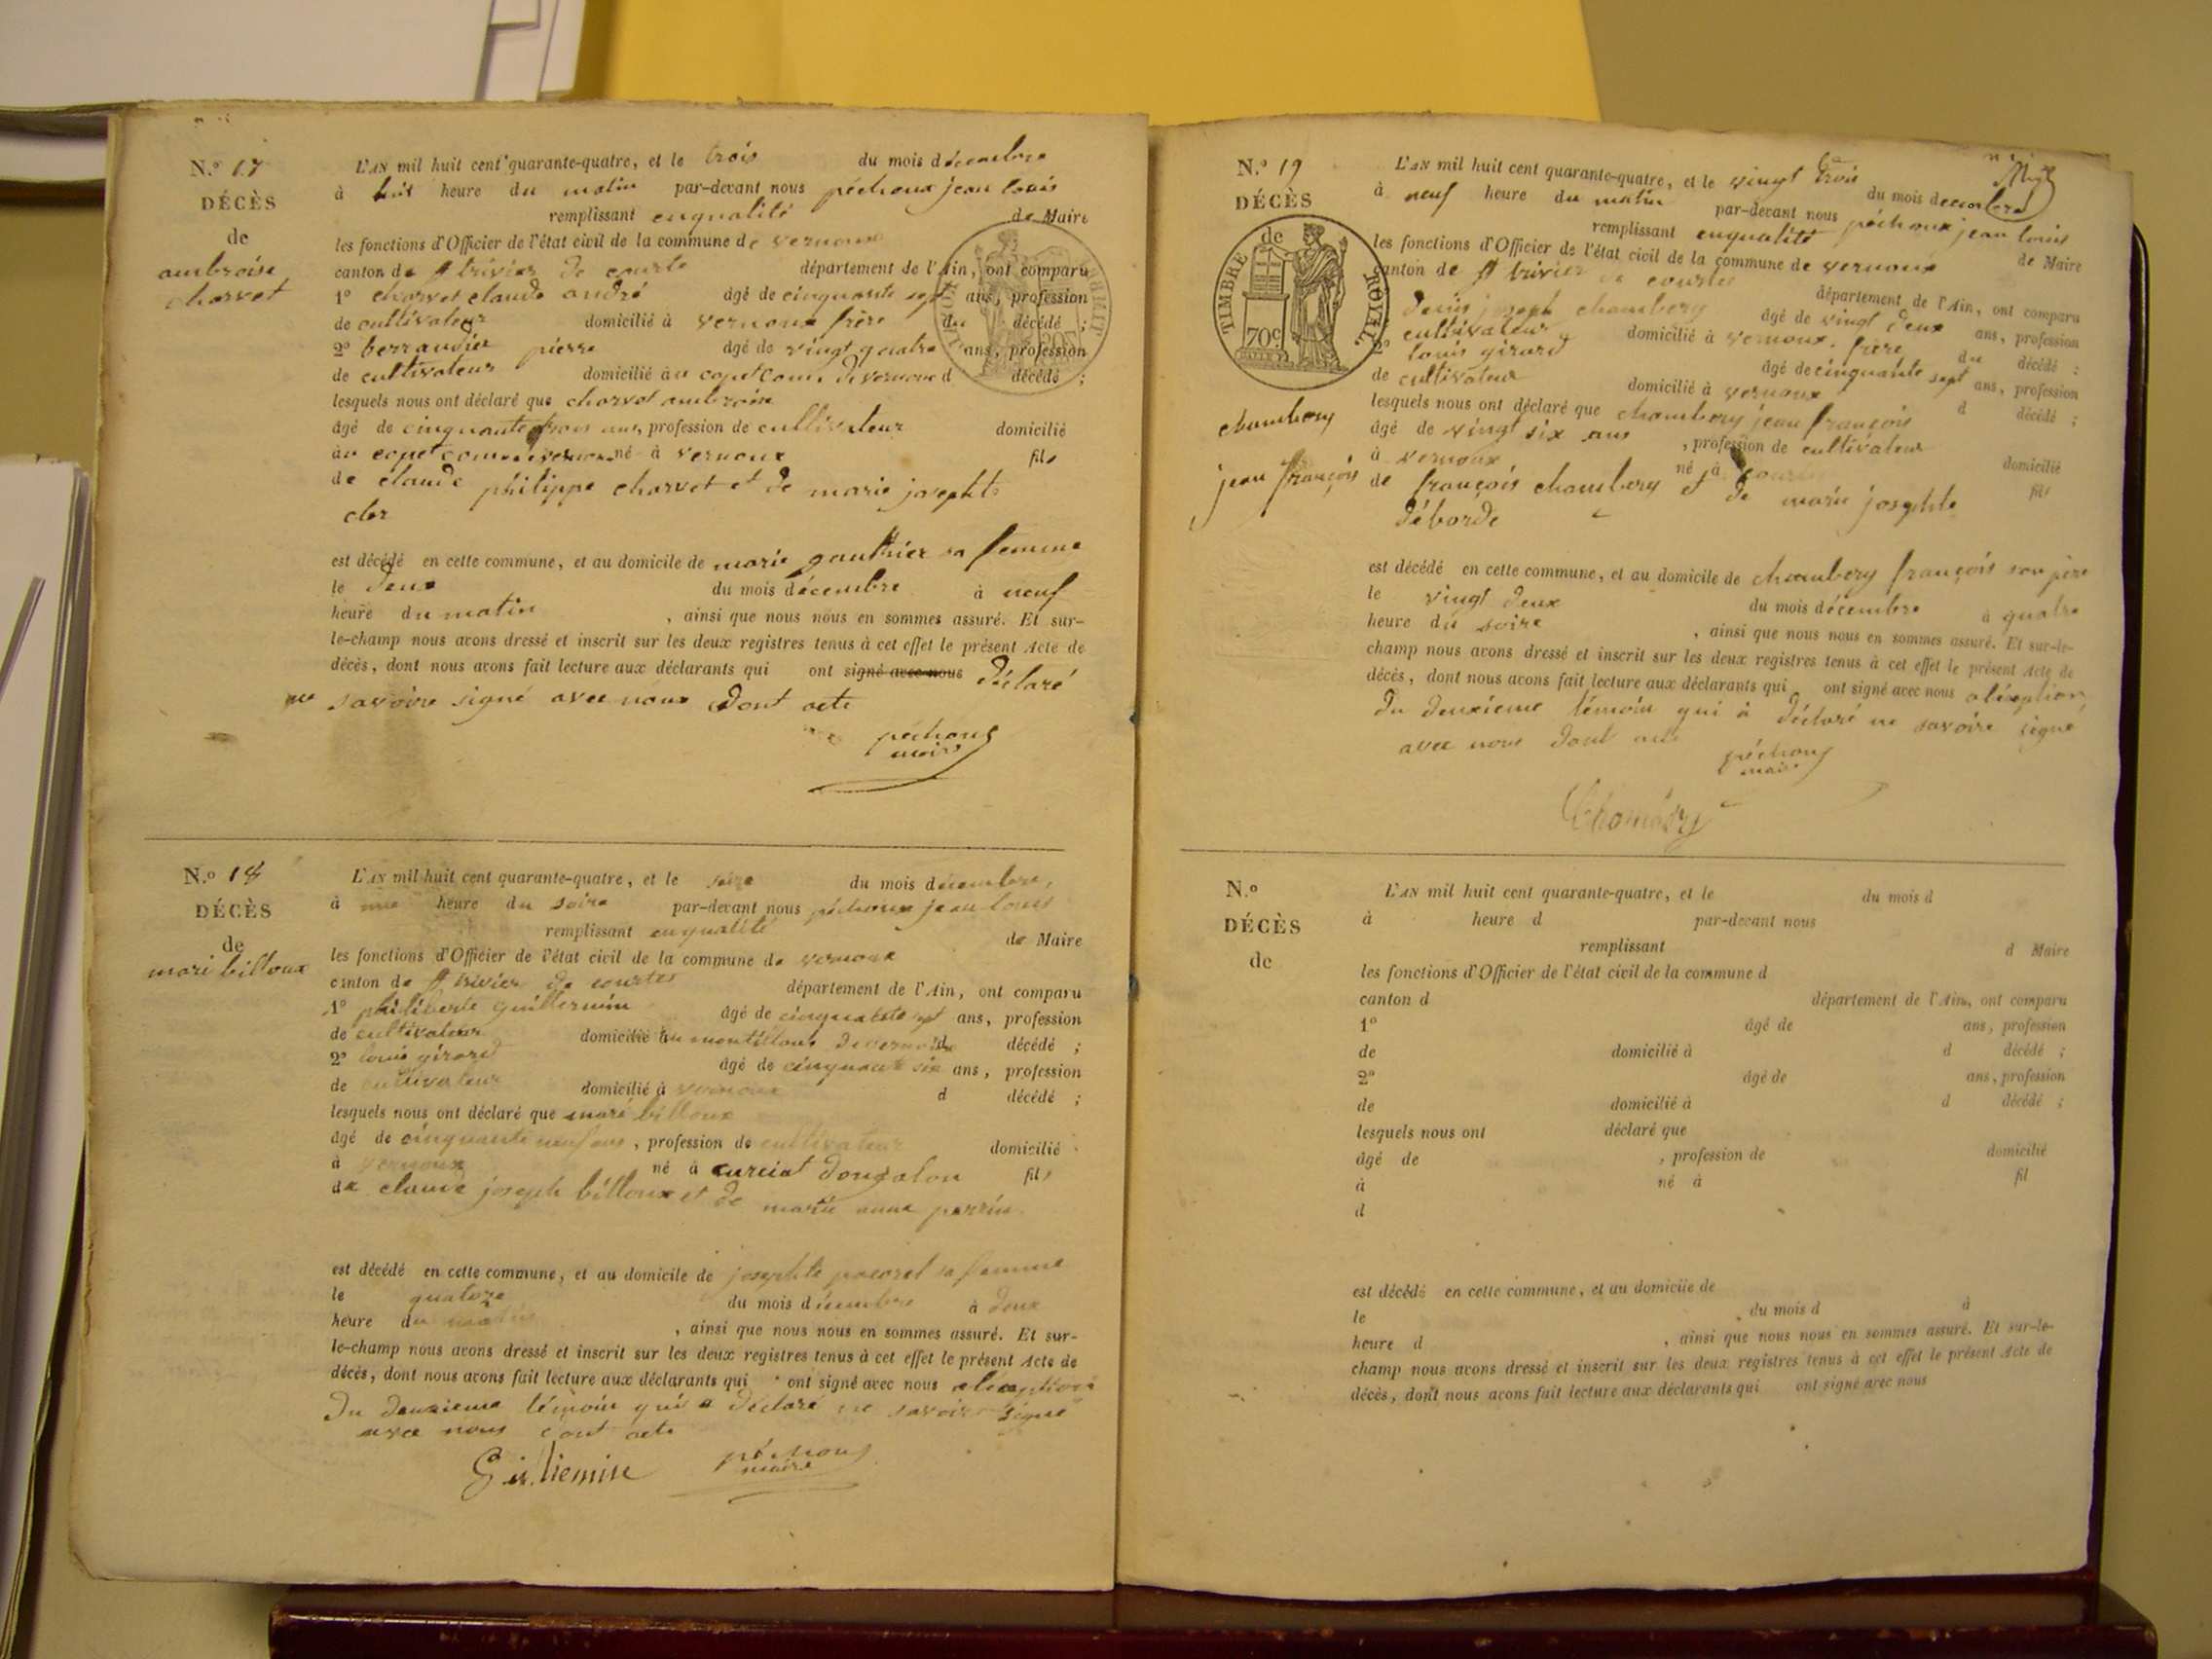 N.o 17
DÉCÈS
de
ambroise
chorvet
L'AN mil huit cent quarante-quatre, et le trois du mois décembre
à huit heure du matin par-devant nous péchoux jean louis
remplissant enqualité de Maire
les fonctions d'Officier de l'état civil de la commune de vernoux
canton de st trivier de courte département de l'Ain, ont comparu
1º chorvet claude andré âgé de cinquante sept ans, profession
de cultivateur domicilié à vernoux frère du décédé ;
2º berraudier pierre âgé de vingt quatre ans, profession
de cultivateur domicilié au de vernoux d décédé ;
lesquels nous ont déclaré que chorvet ambroise
âgé de cinquante trois ans, profession de cultivateur domicilié
au né à vernoux fils
de claude philippe chorvet et de marie josephte
cler
est décédé en cette commune, et au domicile de marie gauthier sa femme
le deux du mois décembre à neuf
heure du matin , ainsi que nous nous en sommes assuré. Et sur-
le-champ nous avons dressé et inscrit sur les deux registres tenus à cet effet le présent Acte de
décès, dont nous avons fait lecture aux déclarants qui ont signé avec nous déclaré
ne savoire signé avec nous dont acte
péchoux
maire
N.o 18
DÉCÈS
de
mari billoux
L'AN mil huit cent quarante-quatre, et le seize du mois décembre,
à une heure du soire par-devant nous péchoux jean louis
remplissant enqualité de Maire
les fonctions d'Officier de l'état civil de la commune de vernoux
canton de st trivier de courtes département de l'Ain, ont comparu
1º philiberte guillermin âgé de cinquante sept ans, profession
de cultivateur domicilié au de vernoux d décédé ;
2º louis girard âgé de cinquante six ans, profession
de cultivateur domicilié à vernoux d décédé ;
lesquels nous ont déclaré que mari billoux
âgé de cinquante neuf ans, profession de cultivateur domicilié
à vernoux né à curciat dongalon fils
de claude joseph billoux et de marie anne perrin
est décédé en cette commune, et au domicile de josephte pocoret sa femme
le quatorze du mois décembre à deux
heure du matin , ainsi que nous nous en sommes assuré. Et sur-
le-champ nous avons dressé et inscrit sur les deux registres tenus à cet effet le présent Acte de
décès, dont nous avons fait lecture aux déclarants qui ont signé avec nous
du deuxieme témoin qui a déclaré ne savoir signé
avec nous dont acte
péchoux
maire
N.o 19
DÉCÈS
de
TIMBRE ROYAL
70c
chambery
jean françois
L'AN mil huit cent quarante-quatre, et le vingt trois du mois decembre
à neuf heure du matin par-devant nous péchoux jean louis
remplissant enqualité de Maire
les fonctions d'Officier de l'état civil de la commune de vernoux
canton de st trivier de courtes département de l'Ain, ont comparu
denis joseph chambery âgé de vingt deux ans, profession
cultivateur domicilié à vernoux frère du décédé ;
2º louis girard âgé de cinquante sept ans, profession
de cultivateur domicilié à vernoux d décédé ;
lesquels nous ont déclaré que chambery jean françois
âgé de vingt six ans , profession de cultivateur domicilié
à vernoux né à fils
de françois chambery et de marie josephte
déborde
est décédé en cette commune, et au domicile de chambery françois son père
le vingt deux du mois décembre à quatre
heure du soire , ainsi que nous nous en sommes assuré. Et sur-le-
champ nous avons dressé et inscrit sur les deux registres tenus à cet effet le présent Acte de
décès, dont nous avons fait lecture aux déclarants qui ont signé avec nous
du deuxieme témoin qui à déclaré ne savoire signe
avec nous dont acte
péchoux
maire
N.o
DÉCÈS
de
L'AN mil huit cent quarante-quatre, et le du mois d
à heure d par-devant nous
remplissant d Maire
les fonctions d'Officier de l'état civil de la commune d
canton d département de l'Ain, ont comparu
1º âgé de ans, profession
de domicilié à d décédé ;
2º âgé de ans, profession
de domicilié à d décédé ;
lesquels nous ont déclaré que
âgé de , profession de domicilié
à né à fil
d
est décédé en cette commune, et au domicile de
le du mois d à
heure d , ainsi que nous nous en sommes assuré. Et sur-le-
champ nous avons dressé et inscrit sur les deux registres tenus à cet effet le présent Acte de
décès, dont nous avons fait lecture aux déclarants qui ont signé avec nous